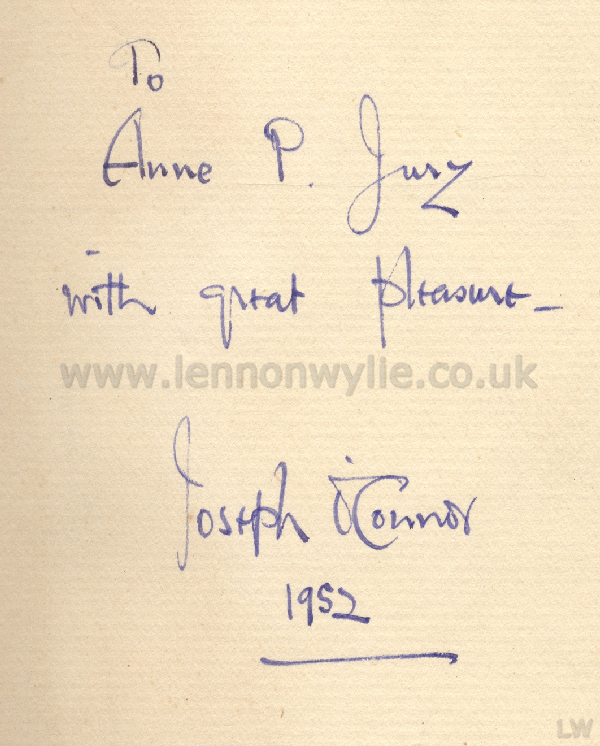 To
Anne P. Jury
with great pleasure_
www.lennonwylie.co.uk
Joseph O'Connor
1952
LW